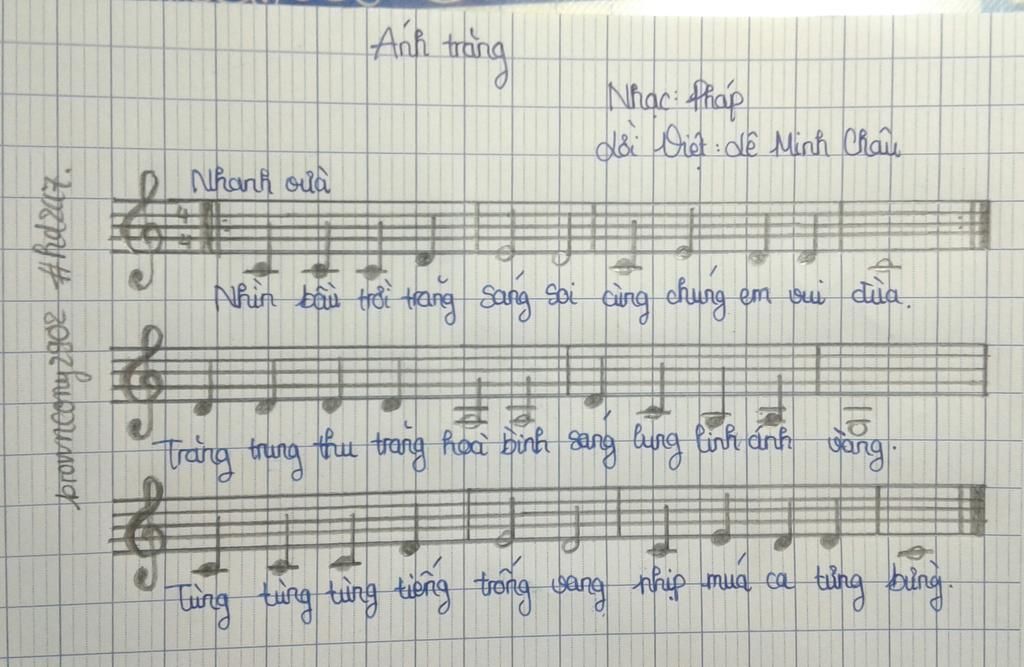 Ánh trăng
Nhạc: Pháp
Lời Việt: Lê Minh Châu
Nhanh vừa
Nhìn bầu trời trăng sáng soi cùng chúng em vui đùa.
Trăng trung thu trăng hoà bình sáng lung linh ánh vàng.
Tùng tùng tùng tiếng trống vang nhịp múa ca tưng bừng.
browncony2902 #hd247.